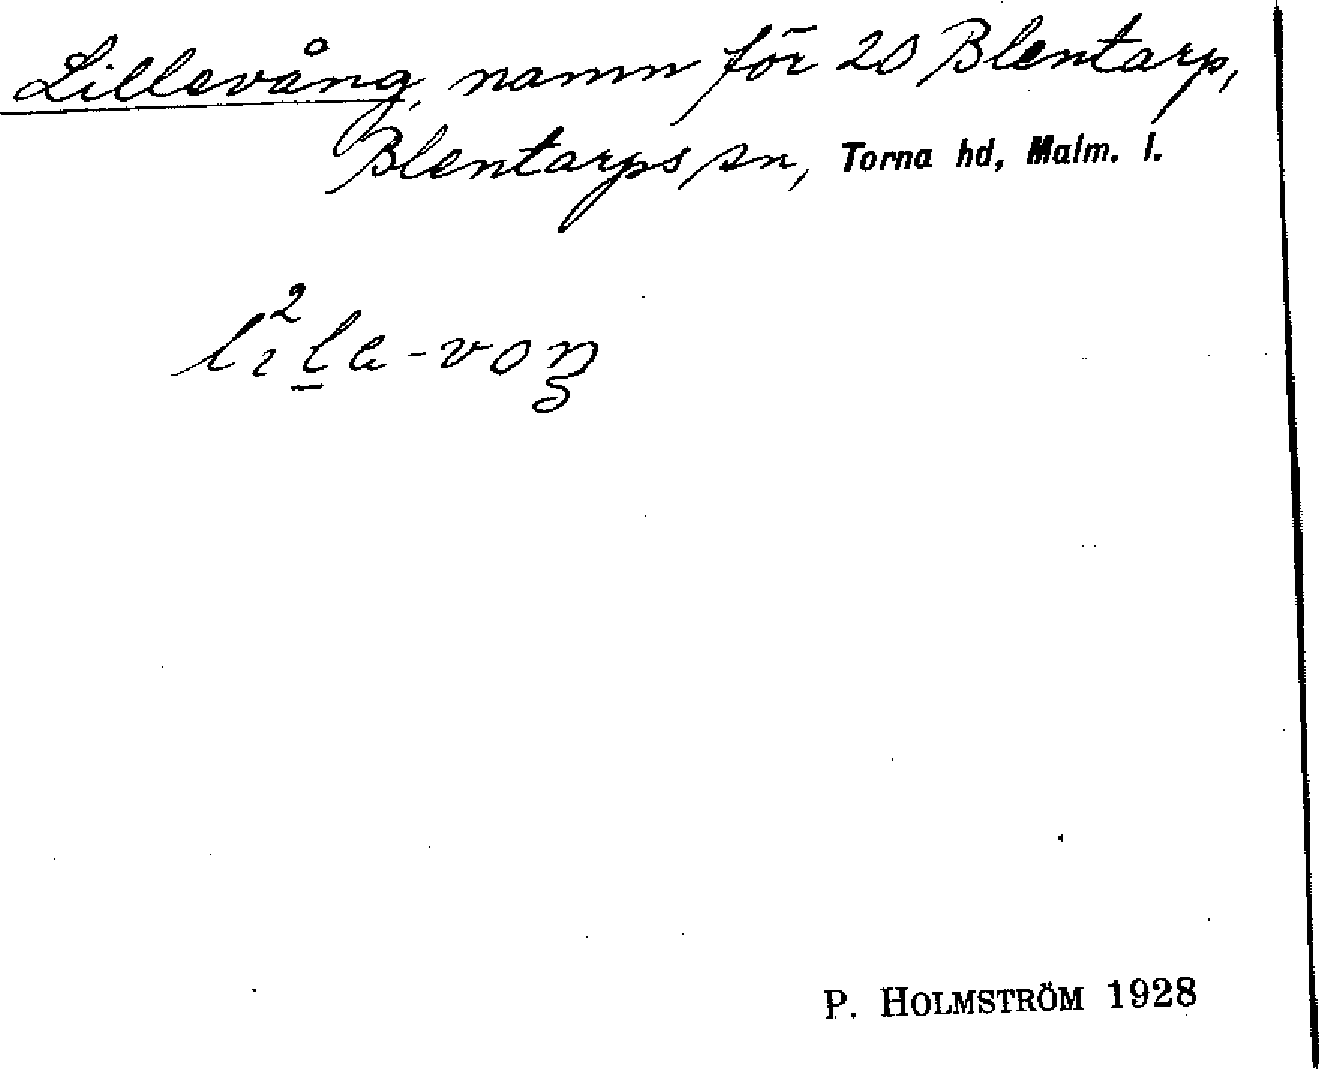 Lillevång, namn för 20 Blentarp,
Blentarps sn, Torna hd, Malm. l.
P. HOLMSTRÖM 1928